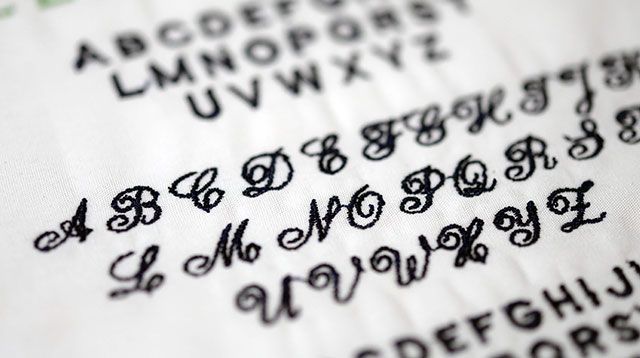 ABCDEFG
LMNOPQRST
UVWXYZ
A B C D E F G H I J K
L M N O P Q R S T
U V W X Y Z
CDEFGHIJ
PQRS